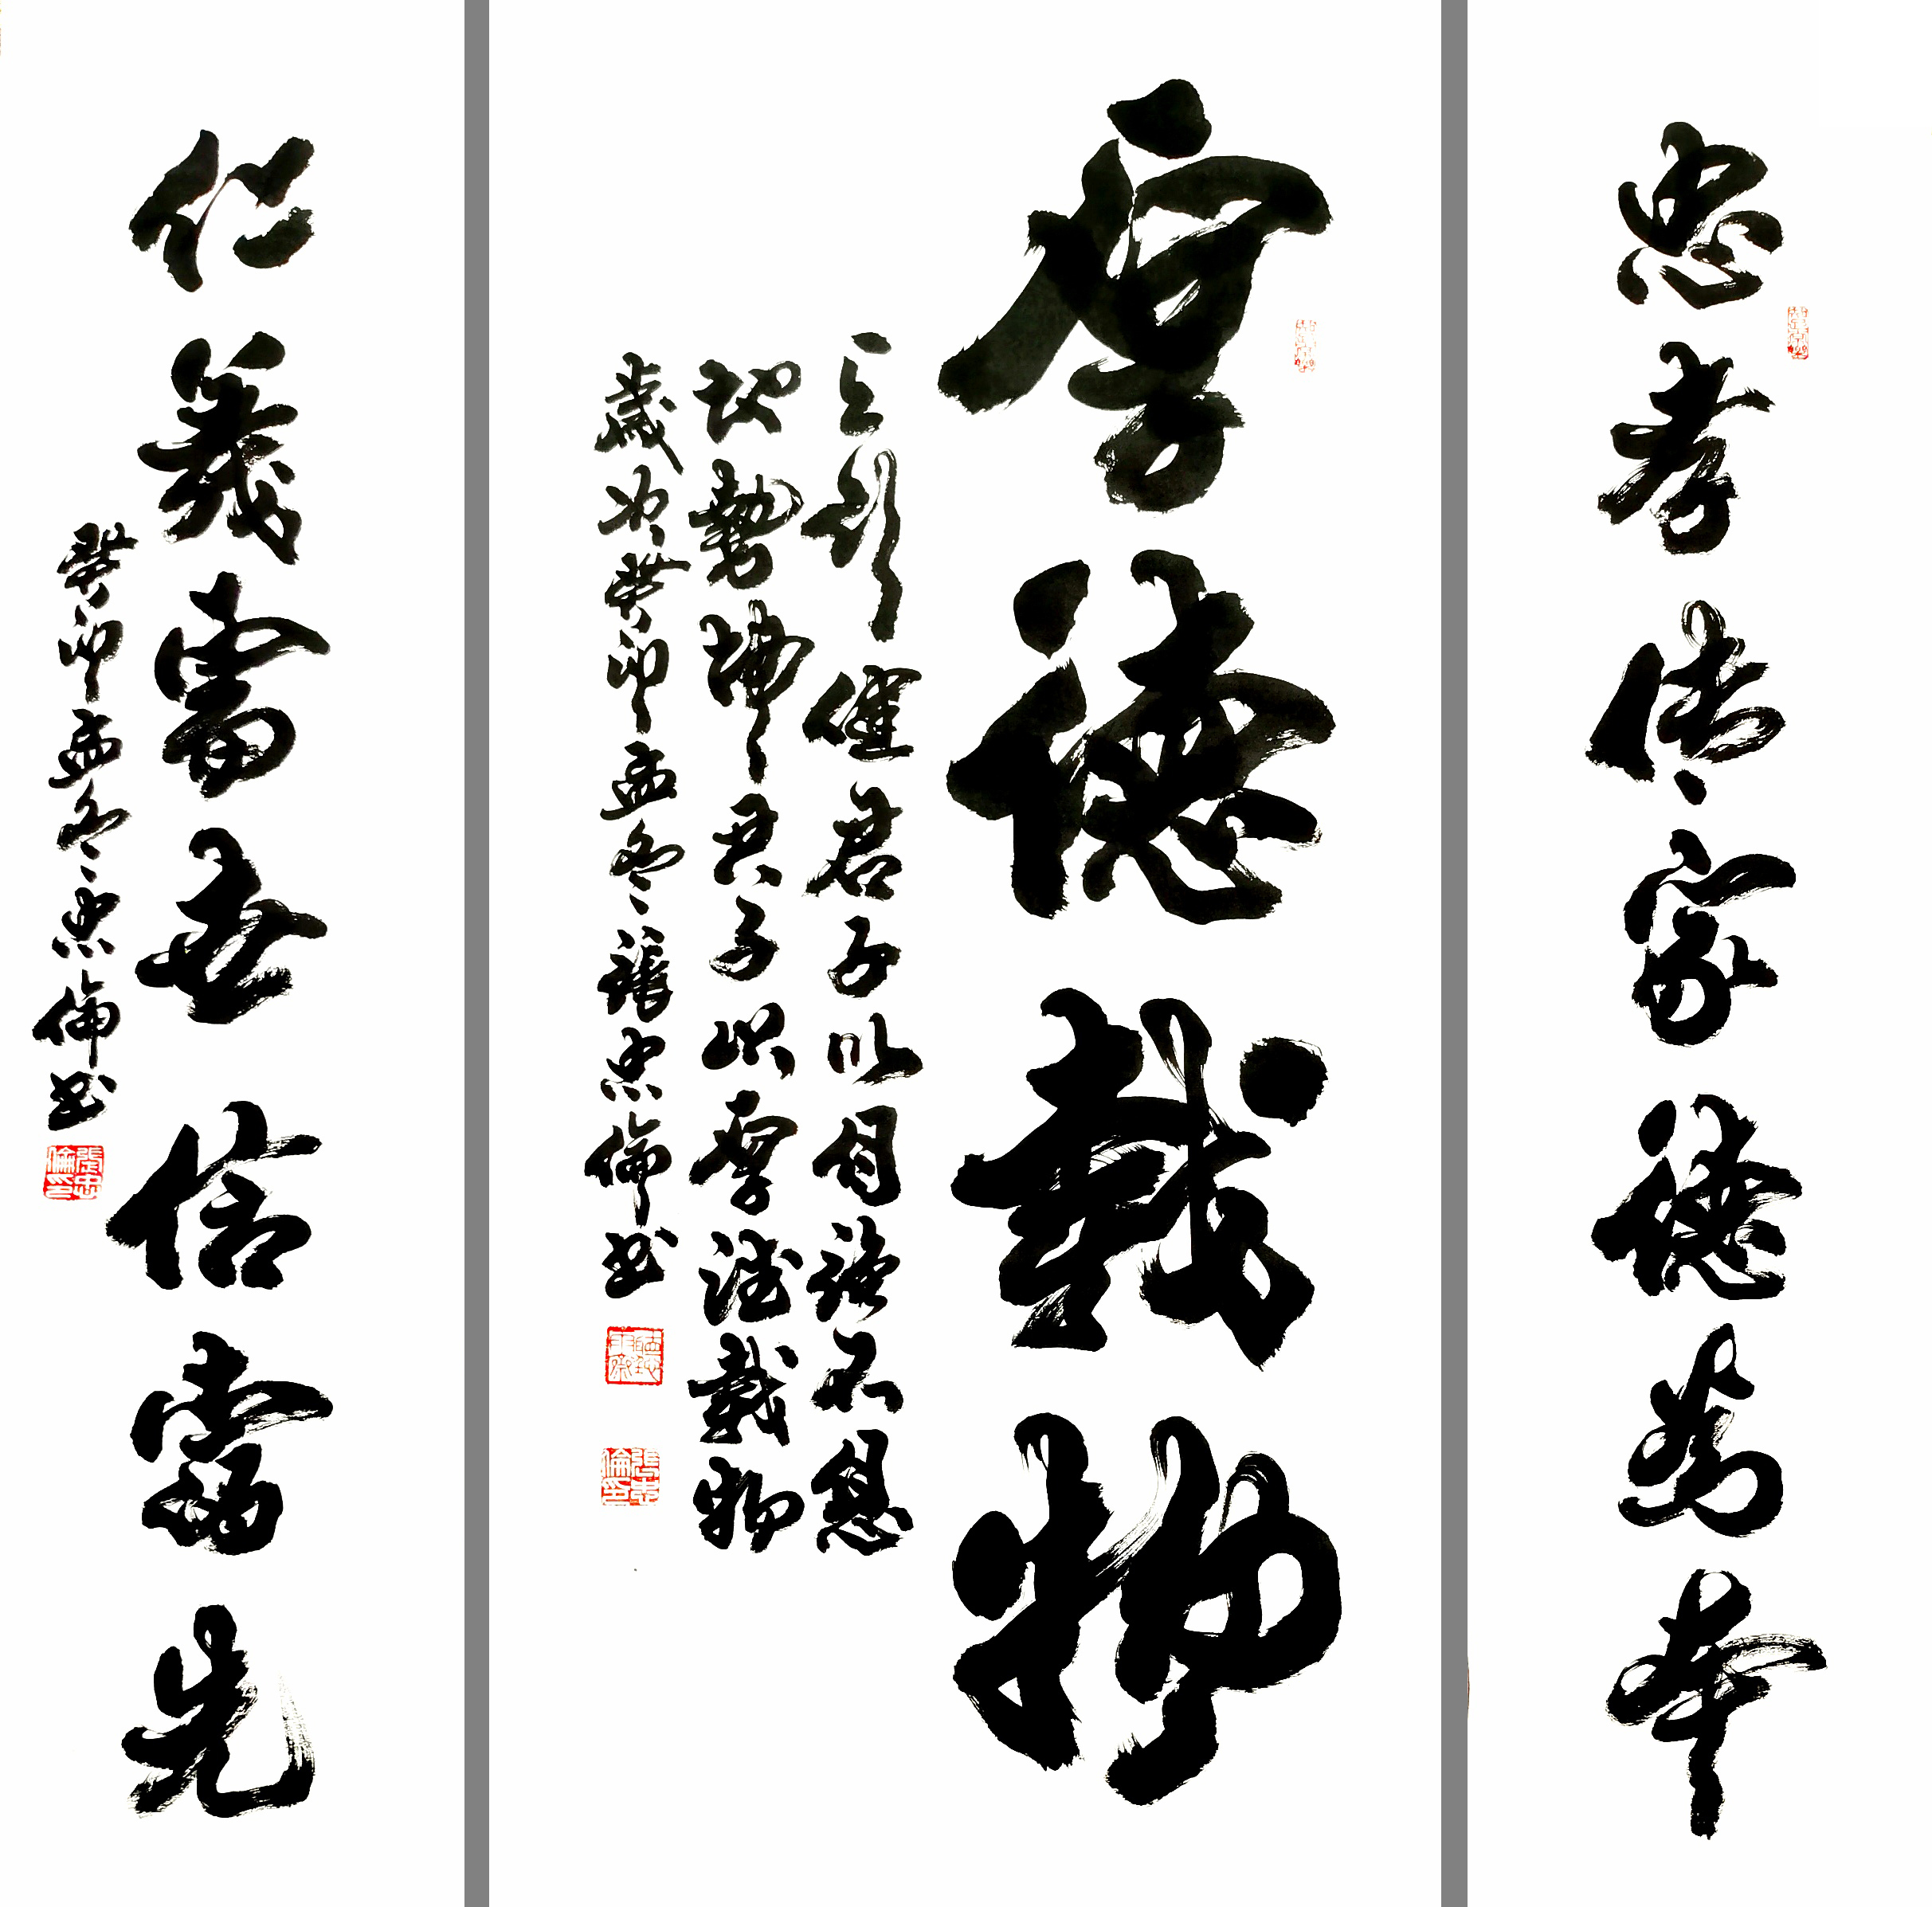 忠孝传家德为本
厚德載物
天行健君子以自強不息
地勢坤君子以厚德載物
歲次癸卯孟冬忠倫書
張忠倫印
仁義世信當先
癸卯孟冬忠倫書
張忠倫印